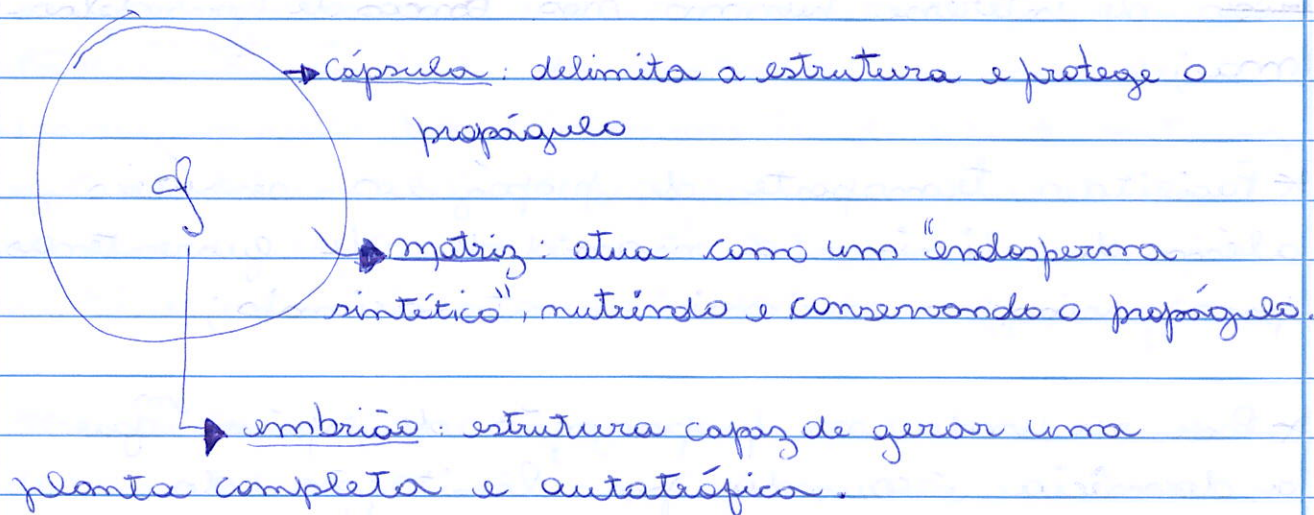 Cápsula: delimita a estrutura e protege o
propágulo
matriz: atua como um "endosperma
sintético", nutrindo e conservando o propágulo.
embrião: estrutura capaz de gerar uma
planta completa e autotrófica.